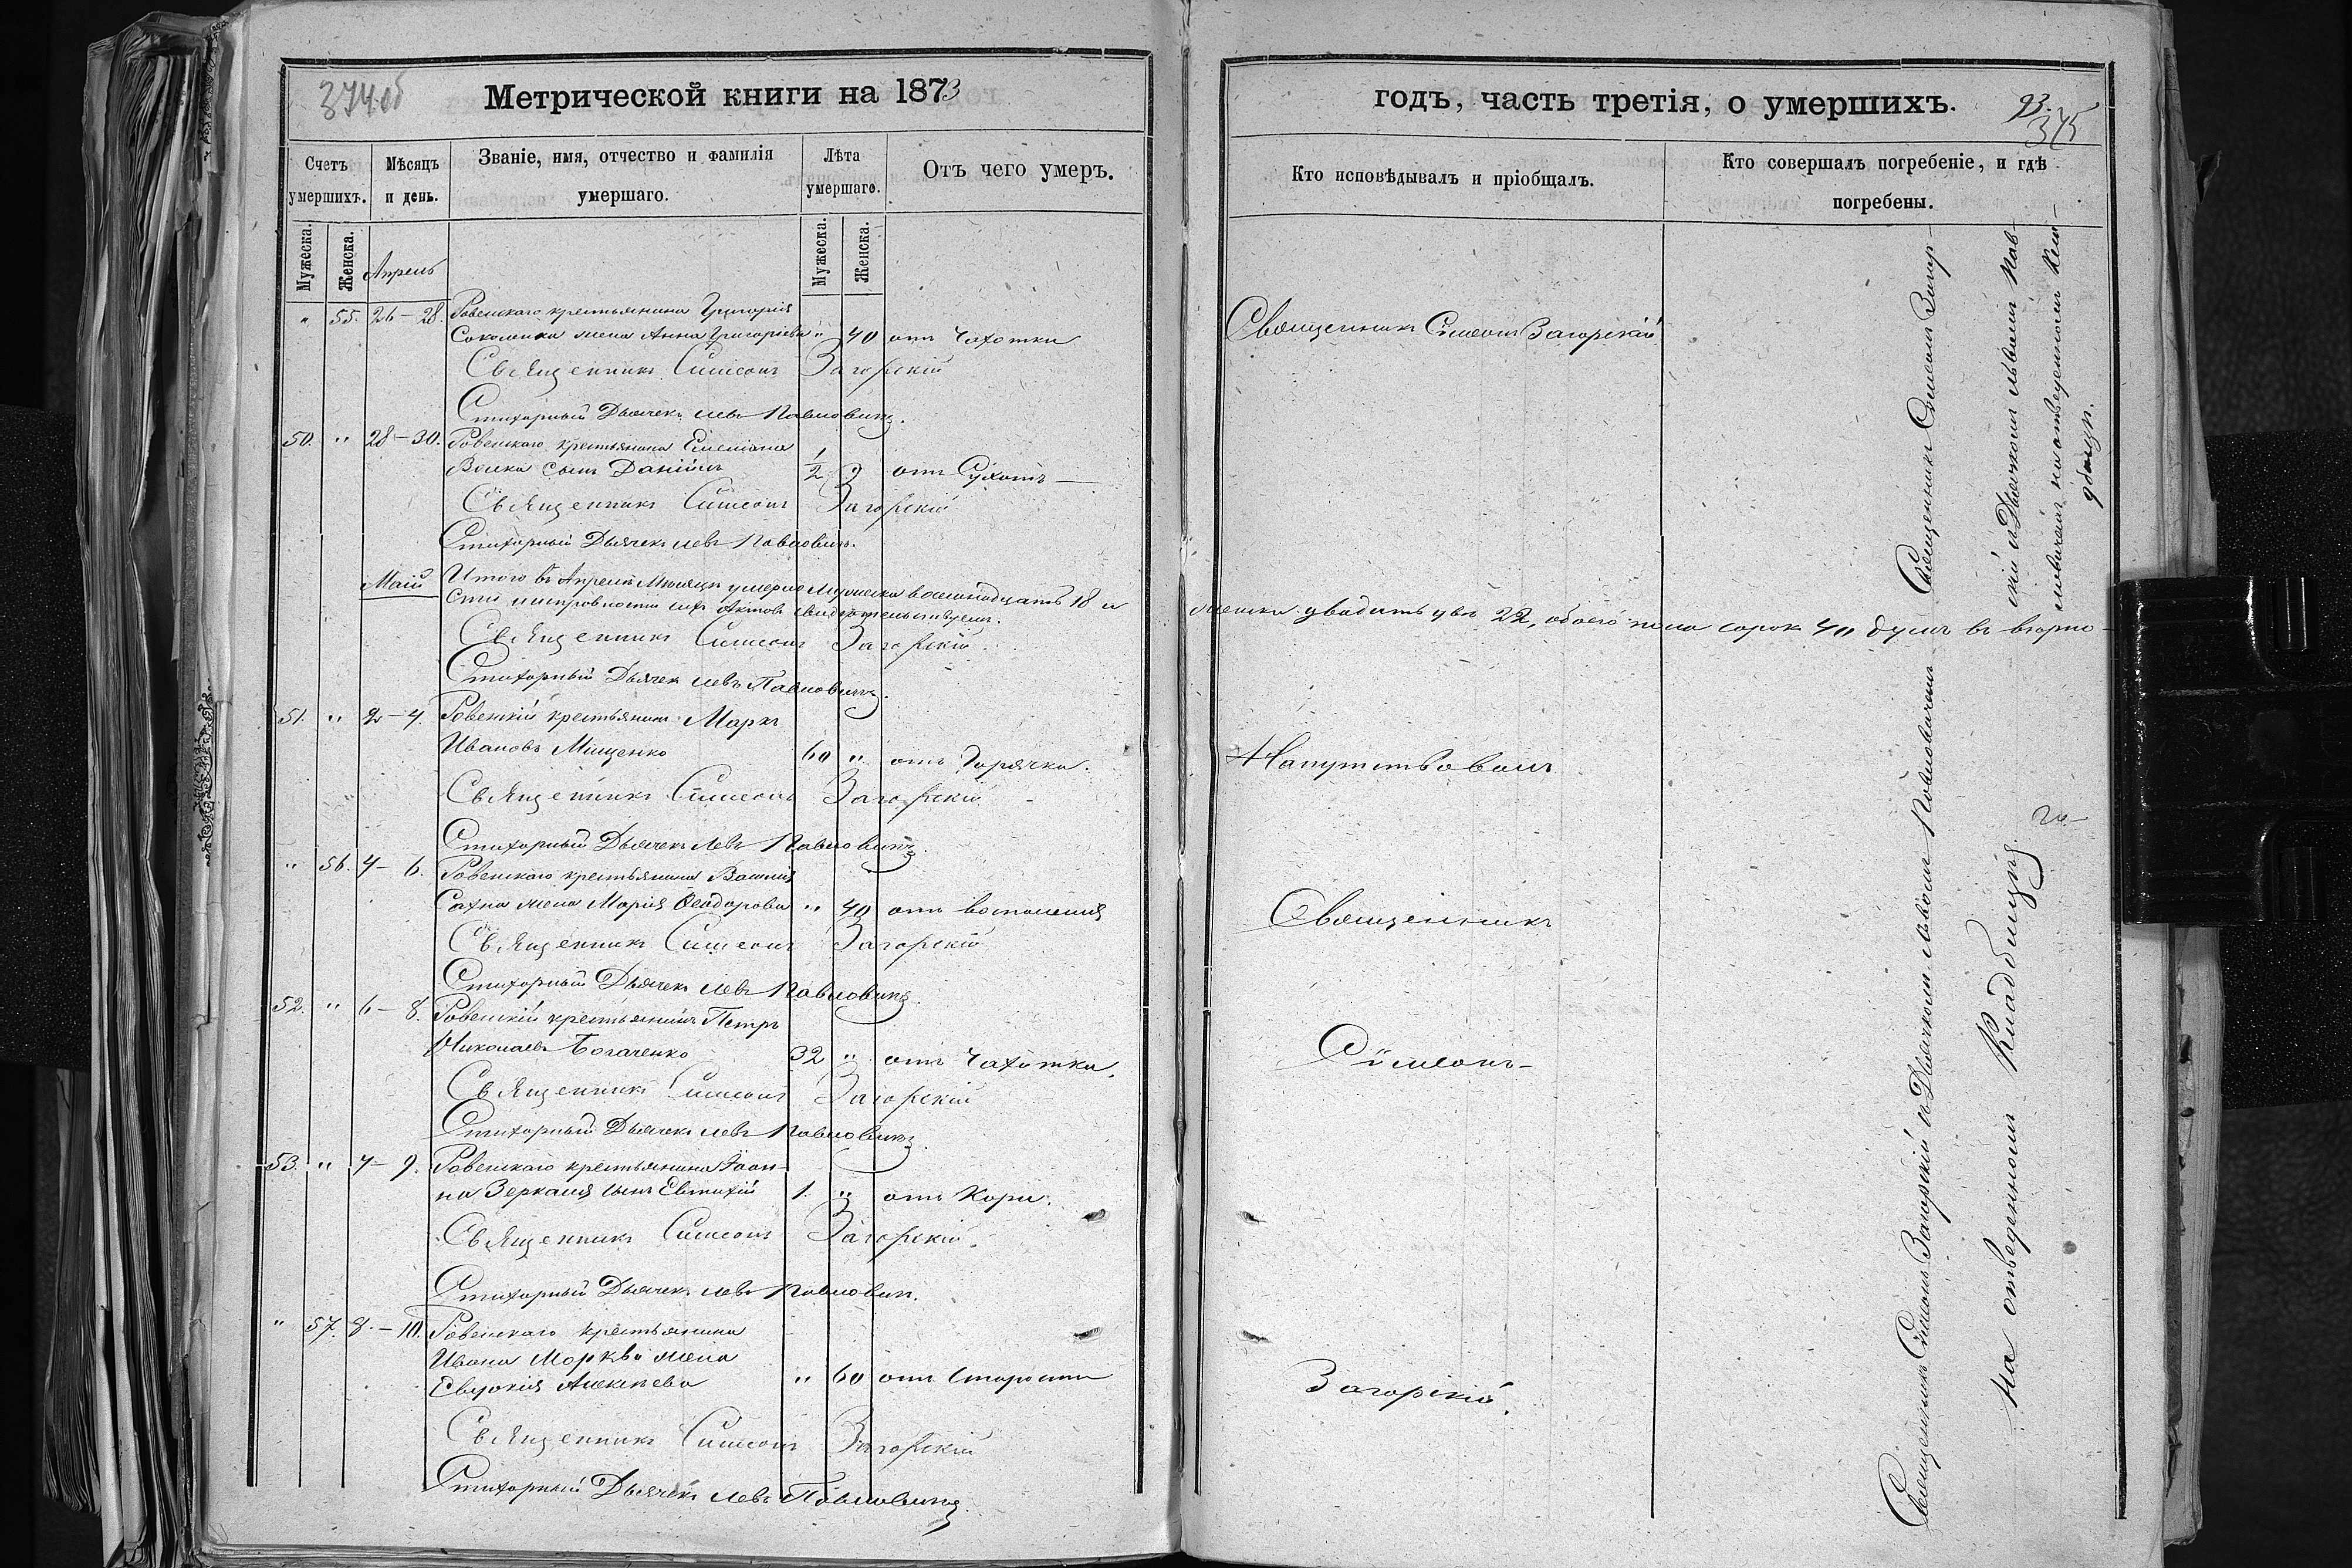 374 об
Метрической книги на 1873
Счетъ умершихъ.
Мѣсяцъ и день.
Званіе, имя, отчество и фамилія умершаго.
Лѣта умершаго.
Отъ чего умеръ.
Мужеска.
Женска.
Мужеска.
Женска.
Апрель
" 55. 26 – 28. Ровенскаго крестьянина Григорія
жена Анна Григорьева " 40 отъ Чахотки
Священникъ Симеонъ Загорскій
Стихарный Дьячекъ Левъ Павловичъ.
50. " 28 – 30. Ровенскаго крестьянина Симеона
Вовка сынъ Даніилъ 1/2 " отъ Сухотъ –
Священникъ Симеонъ Загорскій
Стихарный Дьячекъ Левъ Павловичъ.
Маій
Итого въ Апрелѣ Мѣсяцѣ умерло Мужеска восемнадцать 18 и
женска двадцать два 22, обоего пола сорок 40 душъ въ вѣрно-
сти и исправности сихъ Актовъ свидѣтельствуемъ.
Священникъ Симеонъ Загорскій
Стихарный Дьячек Левъ Павловичъ.
51. " 2 – 4. Ровенскій крестьянинъ Маркъ
Ивановъ Мищенко 60 " отъ Горячки.
Священникъ Симеонъ Загорскій
Стихарный Дьячекъ Левъ Павловичъ.
" 56. 4 – 6. Ровенскаго крестьянина Василія
Сахна жена Марія Ѳеодорова " 40 отъ воспаленія
Священникъ Симеонъ Загорскій
Стихарный Дьячекъ Левъ Павловичъ.
52. " 6 – 8. Ровенскій крестьянинъ Петръ
Николаевъ Богаченко 32 " отъ Чахотки.
Священникъ Симеонъ Загорскій
Стихарный Дьячекъ Левъ Павловичъ.
53. " 7 – 9. Ровенскаго крестьянина Іоан-
на Зеркаля сынъ Евтихій 1. " отъ Кори.
Священникъ Симеонъ Загорскій
Стихарный Дьячекъ Левъ Павлович.
" 57. 8. – 10. Ровенскаго крестьянина
Ивана Моркви жена
Евдокія Алексѣева " 60 отъ Старости
Священникъ Симеонъ Загорскій
Стихарный Дьячекъ Левъ Павловичъ.
годъ, часть третія, о умершихъ.
93.
375
Кто исповѣдывалъ и пріобщалъ.
Кто совершалъ погребеніе, и гдѣ погребены.
Священникъ Симеонъ Загорскій
Напутствовалъ
Священникъ
Симеонъ
Загорскій.
Священникъ Симеонъ Загор-
скій и Дьячкомъ Львомъ Пав-
ловичемъ на отведенномъ Кла-
дбищѣ.
Священникъ Симеонъ Загорскій и Дьячкомъ Львомъ Павловичемъ
на отведенномъ Кладбищѣ.